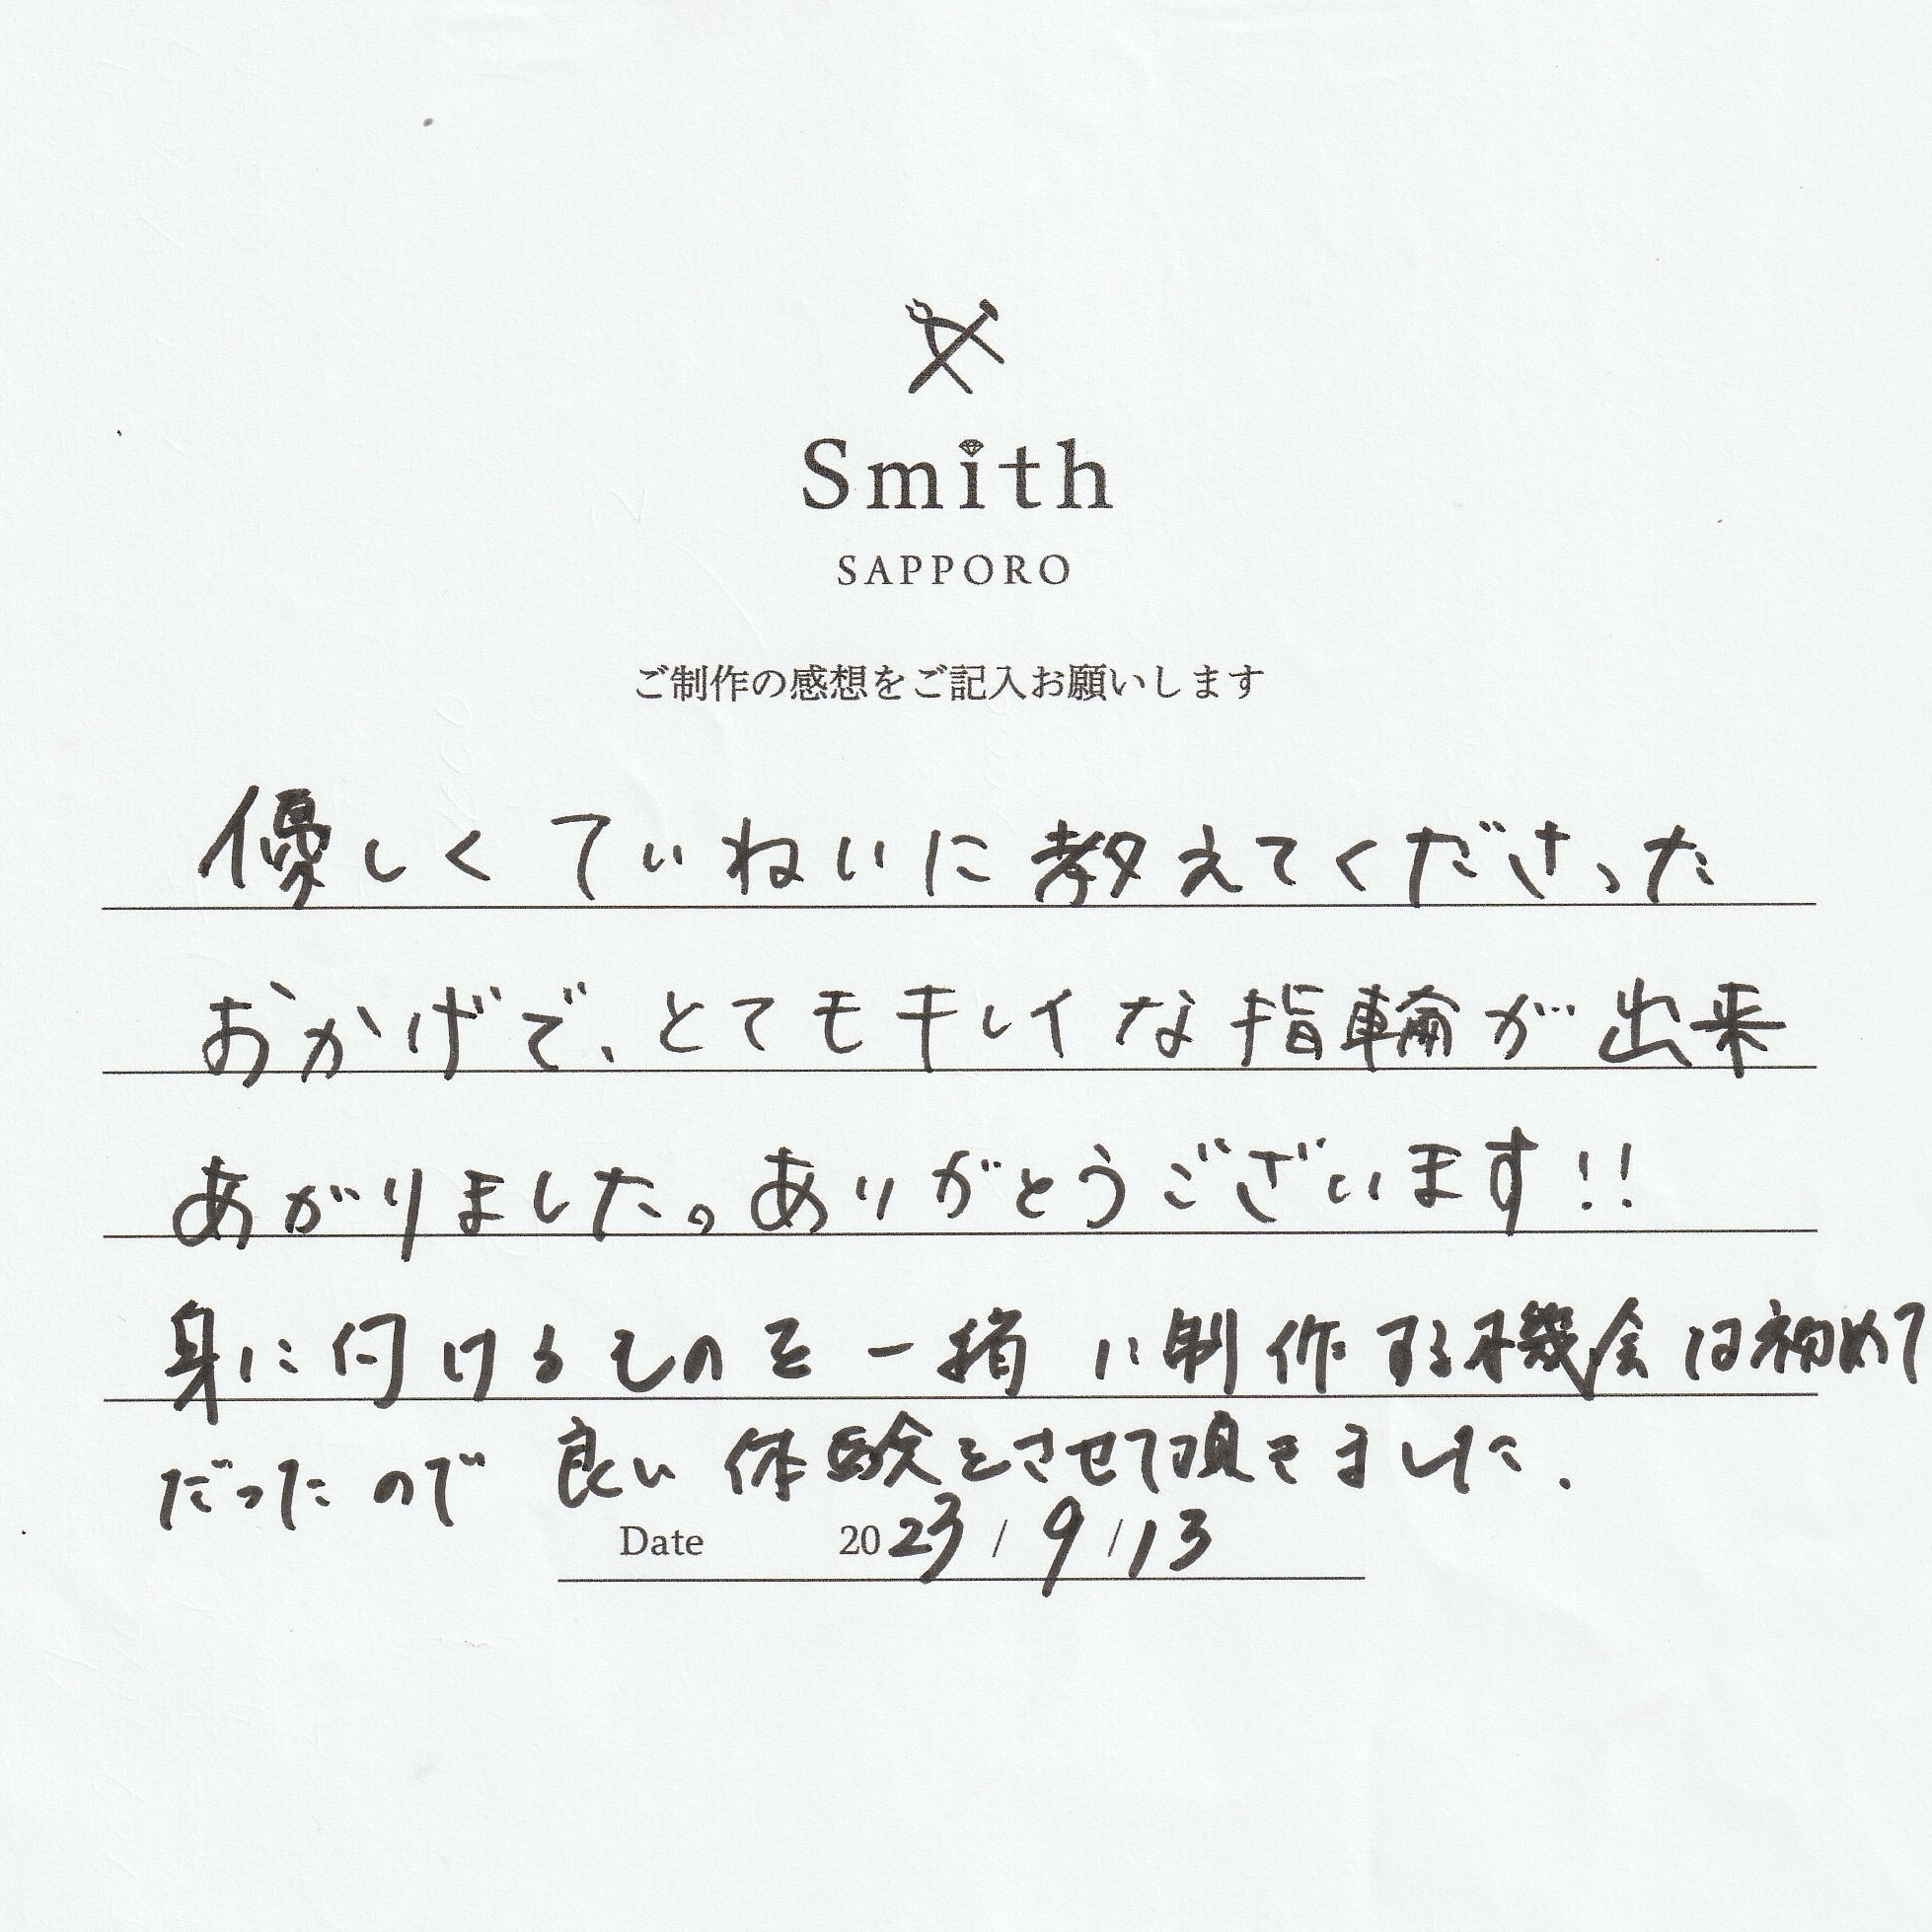 Smith
SAPPORO
ご制作の感想をご記入お願いします
優しくていねいに教えてくださった
おかげで、とてもキレイな指輪が出来
あがりました。ありがとうございます!!
身に付けるものを一指に制作する機会は初めて
だったので良い体験をさせて頂きました.
Date 2023/9/13